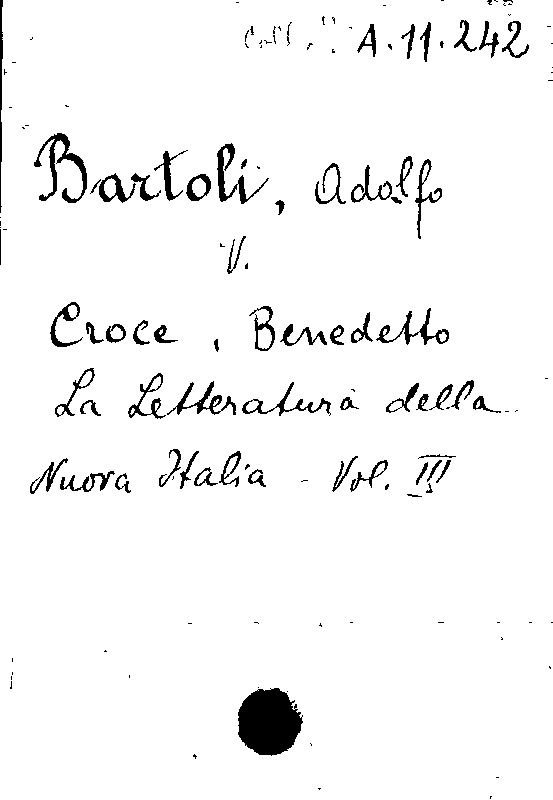 Coll. A.11.242
Bartoli, Adolfo
V.
Croce, Benedetto
La Letteratura della
Nuova Italia - Vol. III